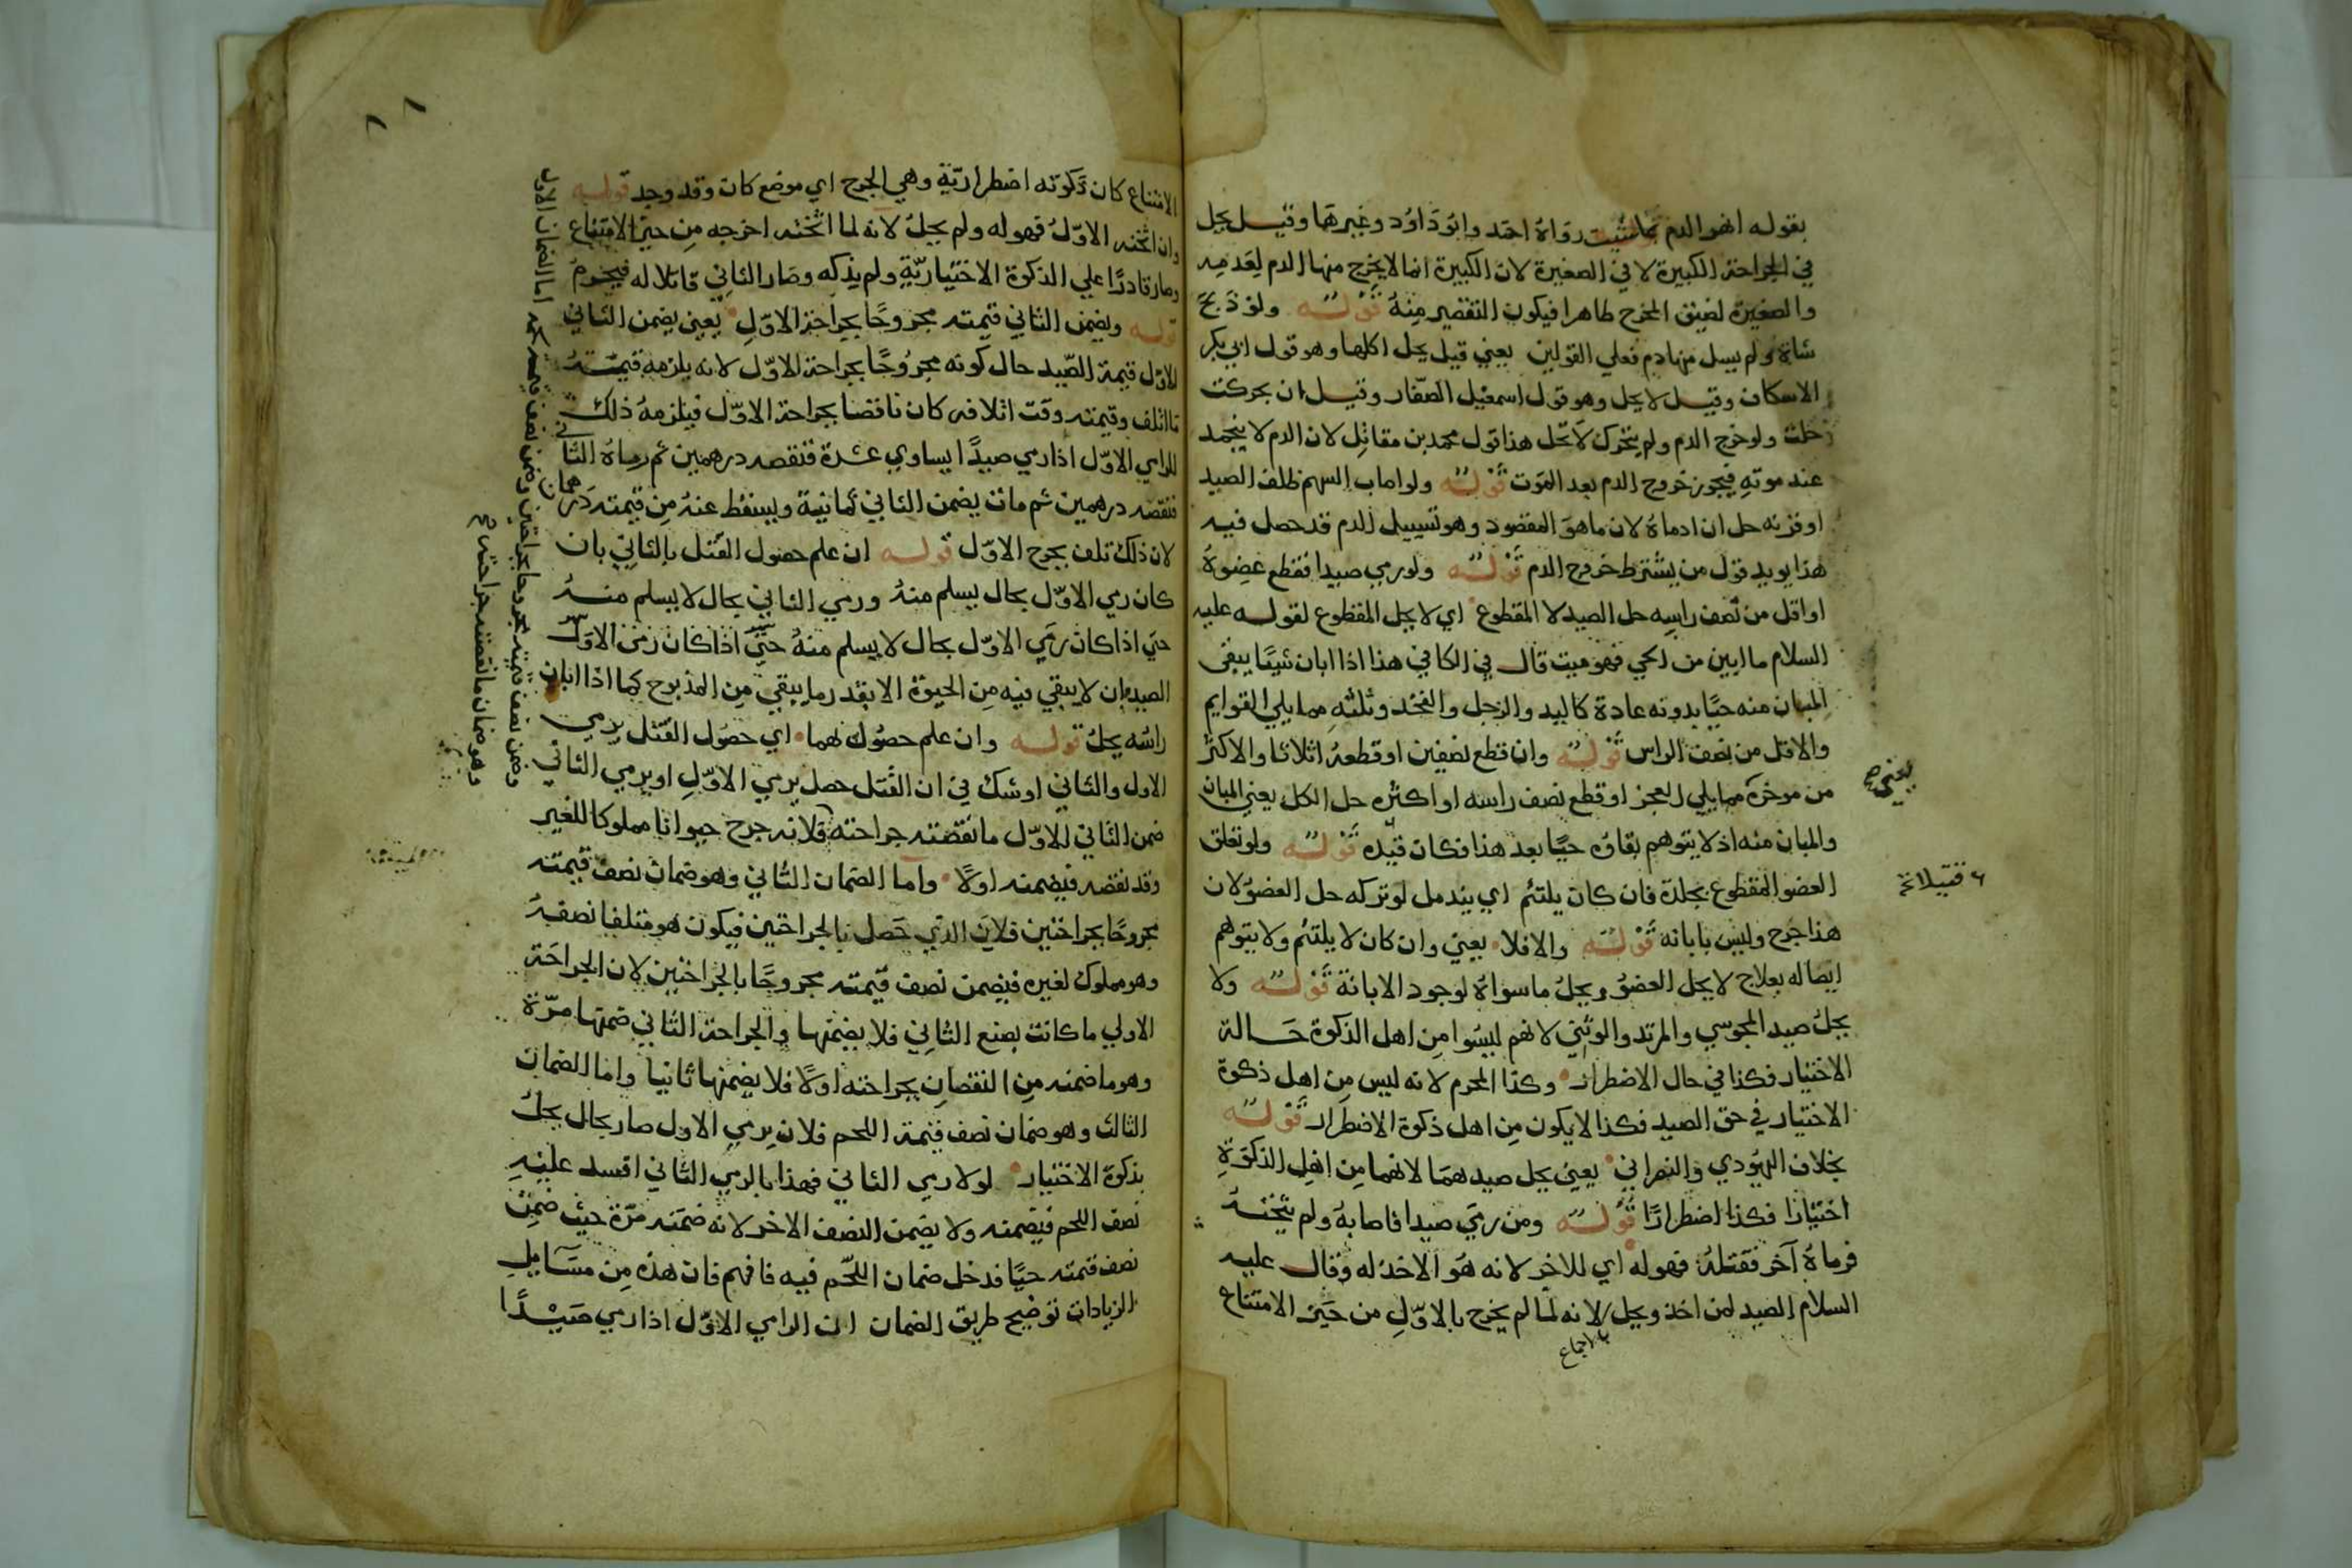 بقوله انهر الدم بما شئت رواه احمد وابو داود وغيرها وقيل يحل
في الجراحة الكبيرة لا في الصغيرة لان الكبيرة انما لا يخرج منها الدم لعدمه
والصغيرة لضيق المخرج ظاهرا فيكون التقصير منه قوله ولو ذبح
شاة ولم يسل منها دم فعلي القولين يعني قيل يحل اكلها وهو قول ابي بكر
الاسكاف وقيل لا يحل وهو قول اسمعيل الصفار وقيل ان تحركت
حلت ولو خرج الدم ولم يتحرك لا تحل هذا قول محمد بن مقاتل لان الدم لا ينجمد
عند موته فيجوز خروج الدم بعد الموت قوله ولو اصاب السهم ظلف الصيد
او قرنه حل ان ادماه لان ما هو المقصود وهو تسييل الدم قد حصل فيه
هذا يويد قول من يشترط خروج الدم قوله ولو رمي صيدا فقطع عضوه
او اقل من نصف راسه حل الصيد لا المقطوع اي لا يحل المقطوع لقوله عليه
السلام ما ابين من الحي فهو ميت قال في الكافي هذا اذا ابان شيئا يبقي
المبان منه حيا بدونه عادة كاليد والرجل والفخد وثلثه مما يلي القوايم
والاقل من نصف الراس قوله وان قطع نصفين او قطعه اثلاثا والاكثر
من موخره مما يلي العجز او قطع نصف راسه او اكثره حل الكل يعني المبان
والمبان منه اذ لا يتوهم بقاؤه حيا بعد هذا فكان قيده قوله ولو تعلق
العضو المقطوع بجلدة فان كان يلتئم اي يندمل لو تركه حل العضو لان
هذا جرح وليس بابانه قوله والا فلا يعني وان كان لا يلتئم ولا يتوهم
ايصاله بعلاج لا يحل العضو ويحل ما سواه لوجود الابانة قوله ولا
يحل صيد المجوسي والمرتد والوثني لانهم ليسوا من اهل الذكوة حالة
الاختيار فكذا في حال الاضطرار وكذا المحرم لانه ليس من اهل ذكوة
الاختيار في حق الصيد فكذا لا يكون من اهل ذكوة الاضطرار قوله
بخلاف اليهودي والنصراني يعني يحل صيدهما لانهما من اهل الذكوة
اختيارا فكذا اضطرارا قوله ومن رمي صيدا فاصابه ولم يثخنه
فرماه آخر فقتله فهو له اي للاخر لانه هو الاخذ له وقال عليه
السلام الصيد لمن اخذ ويحل لانه لما لم يخرج بالاول من حيز الامتناع
يعني
الامتناع كان ذكوته اضطرارية وهي الجرح اي موضع كان وقد وجد قوله
وان اثخنه الاول فهو له ولم يحل لانه لما اثخنه اخرجه من حيز الامتناع
وصار قادرا علي الذكوة الاختيارية ولم يذكه وصار الثاني قاتلا له فيحرم
قوله ويضمن الثاني قيمته مجروحا بجراحة الاول يعني يضمن الثاني
للاول قيمة الصيد حال كونه مجروحا بجراحة الاول لانه يلزمه قيمته
ما اتلف وقيمته وقت اتلافه كان ناقصا بجراحة الاول فيلزمه ذلك
الرامي الاول اذا رمي صيدا يساوي عشرة فنقصه درهمين ثم رماه الثاني
فنقصه درهمين ثم مات يضمن الثاني ثمانية ويسقط عنه من قيمته درهمان
لان ذلك تلف بجرح الاول قوله ان علم حصول القتل بالثاني بان
كان رمي الاول بحال يسلم منه ورمي الثاني بحال لا يسلم منه
حتي اذا كان رمي الاول بحال لا يسلم منه حتي اذا كان رمي الاول
الصيد بان لا يبقي فيه من الحيوة الا بقدر ما يبقي من المذبوح كما اذا ابان
راسه يحل قوله وان علم حصوله لهما اي حصول القتل برمي
الاول والثاني او شك في ان القتل حصل برمي الاول او برمي الثاني
ضمن الثاني للاول ما نقصته جراحته فلانه جرح حيوانا مملوكا للغير
وقد نقصه فيضمنه اولا واما الضمان الثاني وهو ضمان نصف قيمته
مجروحا بجراحتين فلان الذي حصل بالجراحتين فيكون هو متلفا نصفه
وهو مملوك لغيره فيضمن نصف قيمته مجروحا بالجراحتين لان الجراحة
الاولي ما كانت بصنع الثاني فلا يضمنها والجراحة الثاني ضمنها مرة
وهو ما ضمنه من النقصان بجراحته اولا فلا يضمنها ثانيا واما الضمان
الثالث وهو ضمان نصف قيمة اللحم فلان برمي الاول صار بحال يحل
بذكوة الاختيار لولا رمي الثاني فهذا بالرمي الثاني افسد عليه
نصف اللحم فيضمنه ولا يضمن النصف الاخر لانه ضمنه مرة حيث ضمن
نصف قيمته حيا فدخل ضمان اللحم فيه فافهم فان هذه من مسايل
الزيادات توضيح طريق الضمان ان الرامي الاول اذا رمي صيدا
وضمن نصف قيمته مجروحا بجراحتين وضمن نصف قيمة لحمه اما الضمان الاول
وهو ضمان ما نقصته جراحته